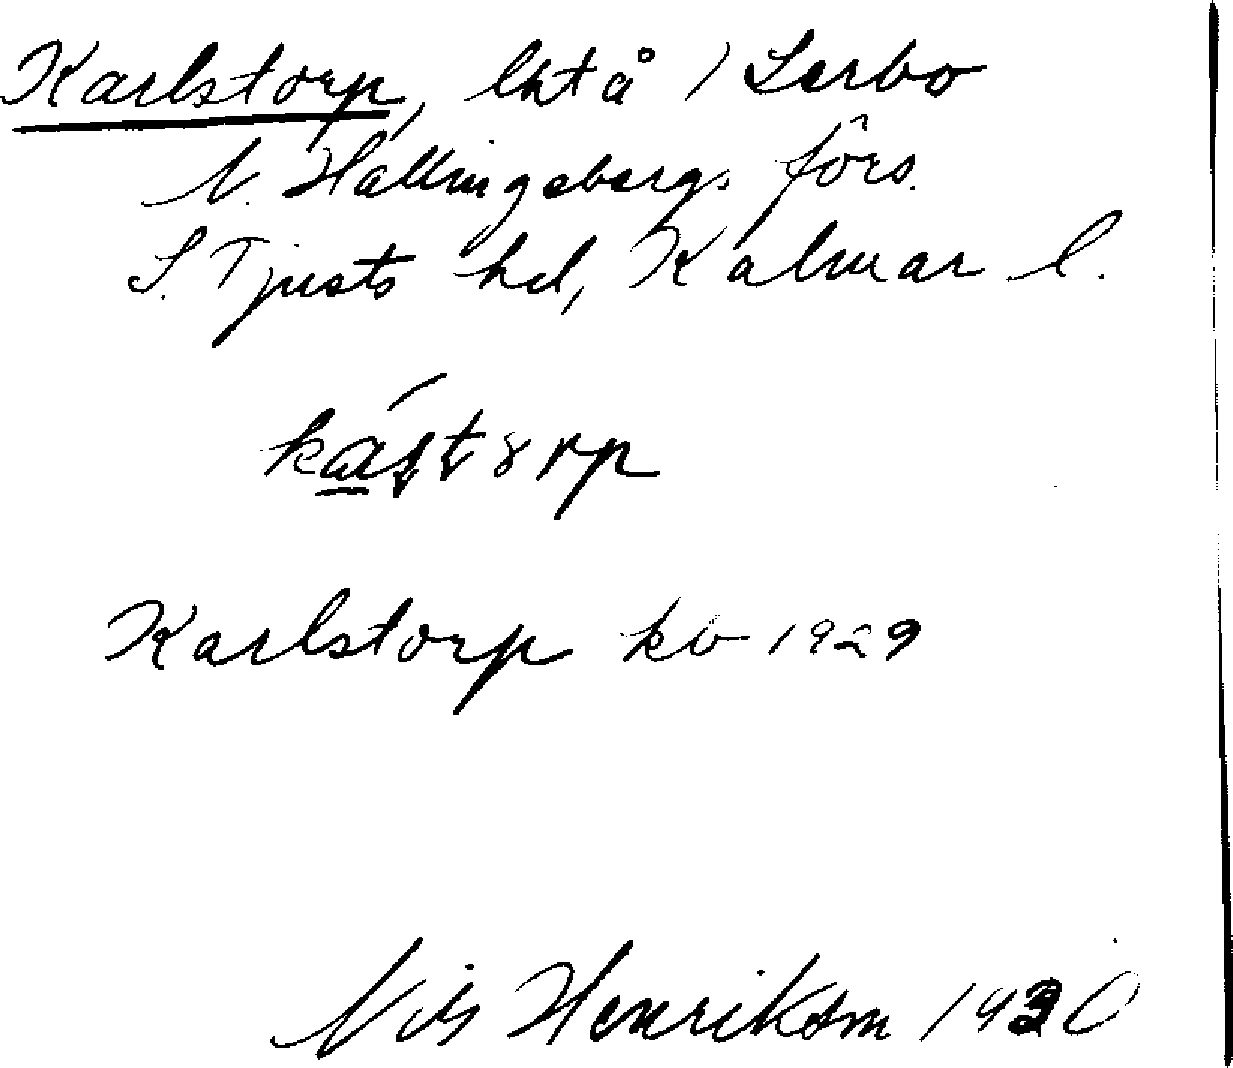 Karlstorp, lht å 1 Lerbo
V. Hallingebergs förs.
S. Tjusts hd, Kalmar l.
Karlstorp kb 1929
Nils Henrikson 1930